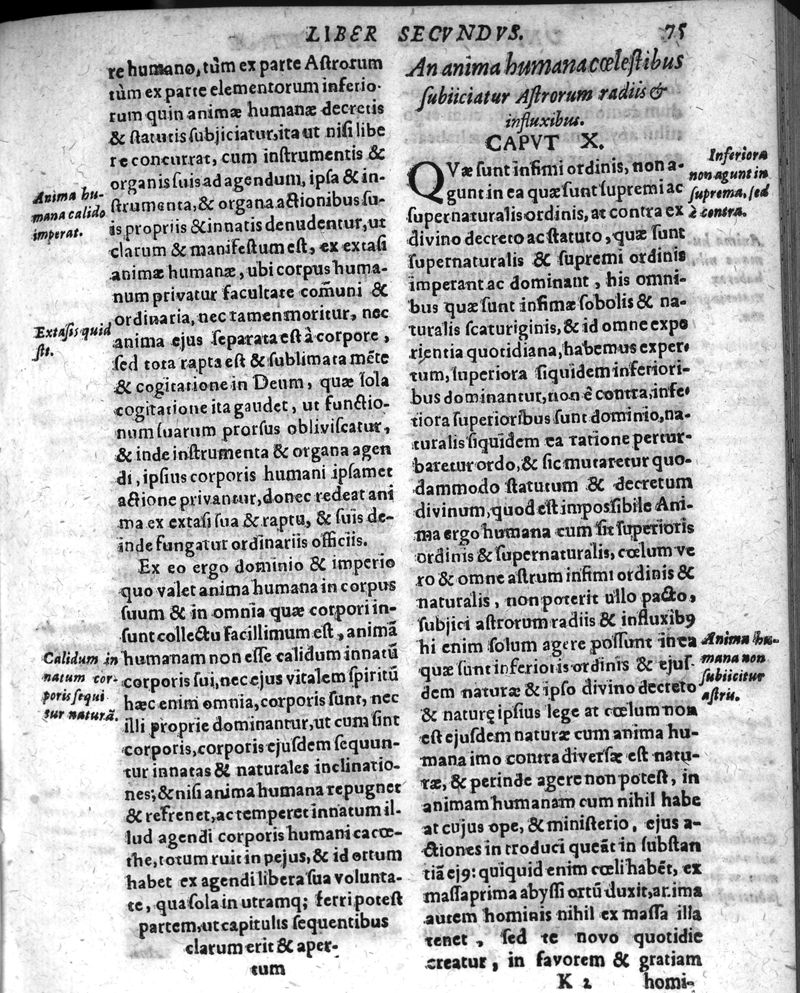 LIBER SECVNDVS. 75
re humano, tùm ex parte Aſtrorum
tùm ex parte elementorum inferio-
rum quin animæ humanæ decretis
& ſtatutis ſubjiciatur, ita ut niſi libe
re concurrat, cum inſtrumentis &
organis ſuis ad agendum, ipſa & in-
ſtrumenta, & organa actionibus ſu-
is propriis & innatis denudentur, ut
clarum & manifeſtum eſt, ex extaſi
animæ humanæ, ubi corpus huma-
num privatur facultate com̃uni &
ordinaria, nec tamen moritur, nec
anima ejus ſeparata eſt à corpore,
ſed tota rapta eſt & ſublimata mẽte
& cogitatione in Deum, quæ ſola
cogitatione ita gaudet, ut functio-
num ſuarum prorſus obliviſcatur,
& inde inſtrumenta & organa agen
di, ipſius corporis humani ipſamet
actione privantur, donec redeat ani
ma ex extaſi ſua & raptu, & ſuis de-
inde fungatur ordinariis officiis.
Ex eo ergo dominio & imperio
quo valet anima humana in corpus
ſuum & in omnia quæ corpori in-
ſunt collectu facillimum eſt, animã
humanam non eſſe calidum innatũ
corporis ſui, nec ejus vitalem ſpiritũ
hæc enim omnia, corporis ſunt, nec
illi proprie dominantur, ut cum ſint
corporis, corporis ejuſdem ſequun-
tur innatas & naturales inclinatio-
nes; & niſi anima humana repugnet
& refrenet, ac temperet innatum il-
lud agendi corporis humani cacoe-
the, totum ruit in pejus, & id ortum
habet ex agendi libera ſua volunta-
te, qua ſola in utramq; ferri poteſt
partem, ut capitulis ſequentibus
clarum erit & aper-
tum
Anima hu-
mana calido
imperat.
Extaſis quid
ſit.
Calidum in
natum cor-
poris ſequi
tur naturã.
An anima humana cœleſtibus
ſubiiciatur Aſtrorum radiis &
influxibus.
CAPVT X.
QVæ ſunt infimi ordinis, non a-
gunt in ea quæ ſunt ſupremi ac
ſupernaturalis ordinis, at contra ex
divino decreto ac ſtatuto, quæ ſunt
ſupernaturalis & ſupremi ordinis
imperant ac dominant, his omni-
bus quæ ſunt infimæ ſobolis & na-
turalis ſcaturiginis, & id omne expe
rientia quotidiana, habemus exper-
tum, ſuperiora ſiquidem inferiori-
bus dominantur, non è contra, infe-
riora ſuperioribus ſunt dominio, na-
turalis ſiquidem ea ratione pertur-
baretur ordo, & ſic mutaretur quo-
dammodo ſtatutum & decretum
divinum, quod eſt impoſſibile Ani-
ma ergo humana cum ſit ſuperioris
ordinis & ſupernaturalis, cœlum ve
ro & omne aſtrum infimi ordinis &
naturalis, non poterit ullo pacto,
ſubjici aſtrorum radiis & influxibꝯ
hi enim ſolum agere poſſunt in ea
quæ ſunt inferioris ordinis & ejuſ-
dem naturæ & ipſo divino decreto
& naturę ipſius lege at cœlum non
eſt ejuſdem naturæ cum anima hu-
mana imo contra diverſæ eſt natu-
ræ, & perinde agere non poteſt, in
animam humanam cum nihil habe
at cujus ope, & miniſterio, ejus a-
ctiones introduci queãt in ſubſtan
tiã ejꝯ: quiquid enim cœli habẽt, ex
maſſa prima abyſſi ortũ duxit, anima
autem hominis nihil ex maſſa illa
tenet, ſed te novo quotidie
creatur, in favorem & gratiam
K 2 homi-
Inferiora
non agunt in
ſuprema, ſed
è contra.
Anima hu-
mana non
ſubiicitur
aſtris.